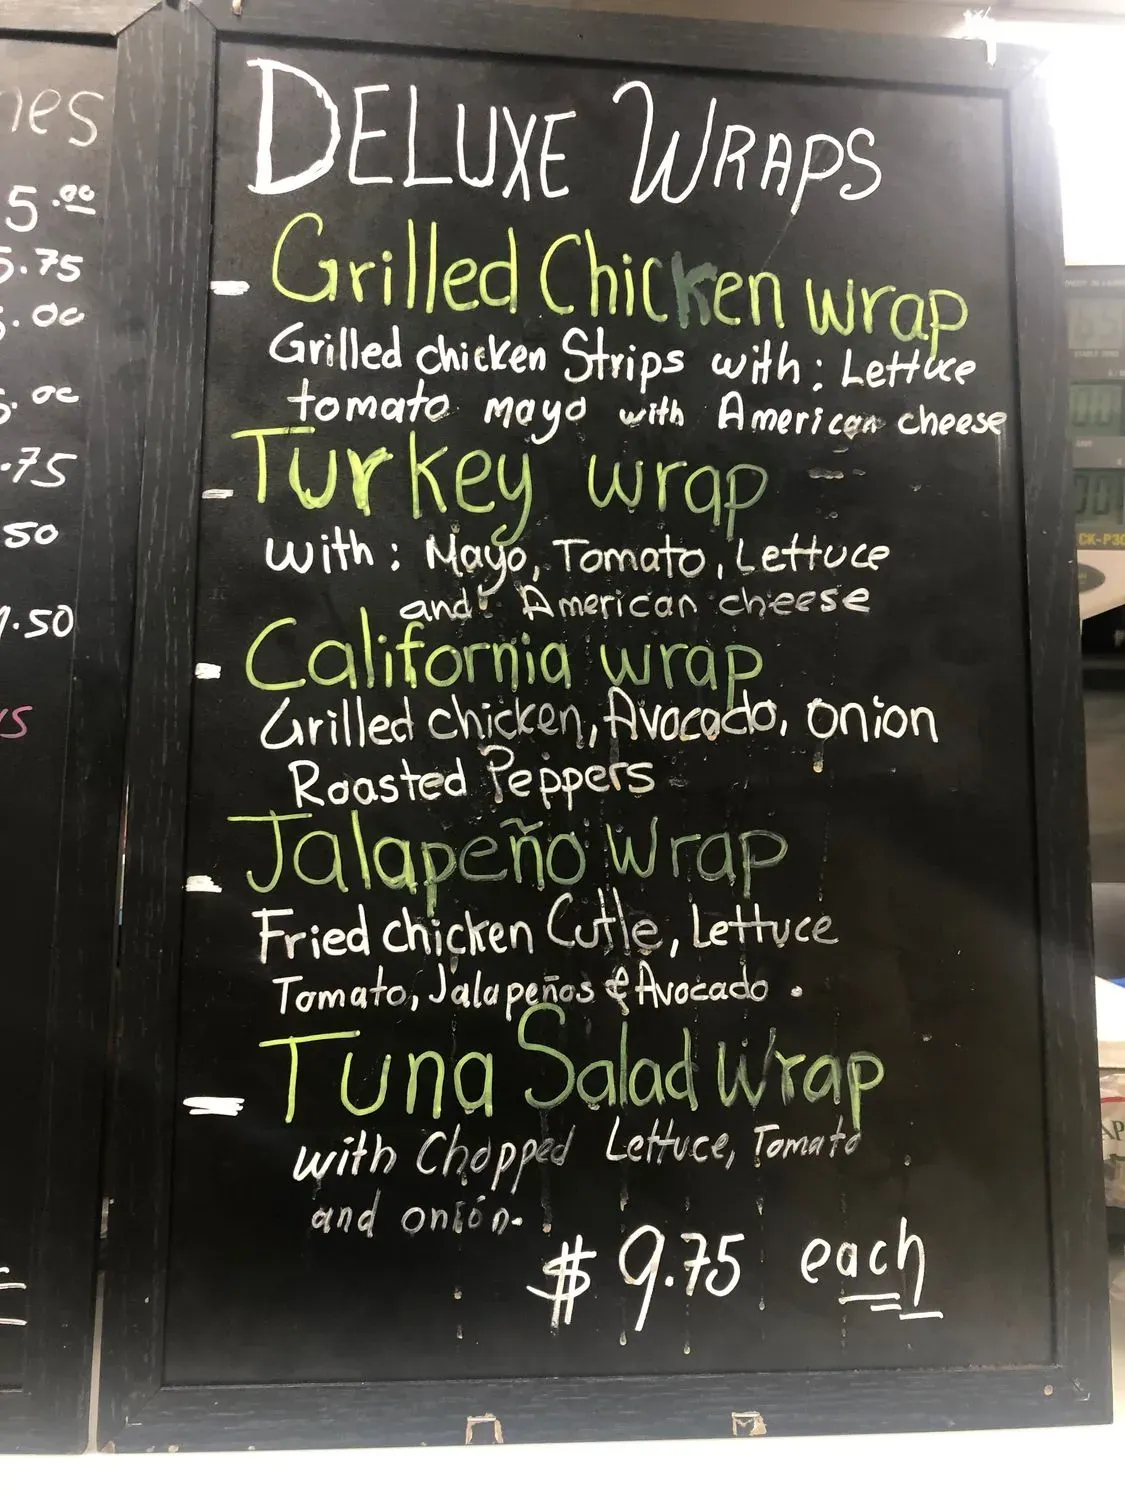 nes
5.00
5.75
.00
.75
.50
.50
DELUXE WRAPS
- Grilled Chicken wrap
Grilled chicken Strips with: Lettuce
tomato mayo with American cheese
- Turkey wrap
with: Mayo, Tomato, Lettuce
and American cheese
- California wrap
Grilled chicken, Avocado, onion
Roasted Peppers
- Jalapeño Wrap
Fried chicken Cutle, Lettuce
Tomato, Jalapeños & Avocado.
- Tuna Salad Wrap
with Chopped Lettuce, Tomato
and onión.
$ 9.75 each
CK-P30